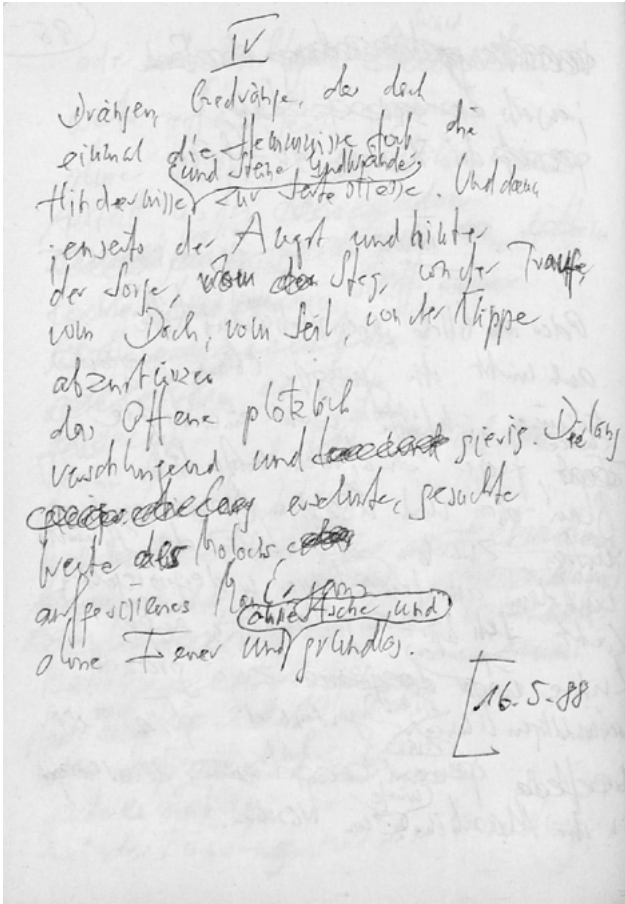 IV
Drängen, Gedränge, das doch
einmal die Hemmnisse und die
(und Steine und Wände)
Hindernisse zur Seite stiesse. Und dann
jenseits der Angst und hinter
der Sorge, vom Steg, von der Traufe,
vom Dach, vom Seil, von der Klippe
abzustürzen
das Offene plötzlich
verschlingend und gierig. Die lang
ersehnte, gesuchte
Weite als Molochs
aufgerissenes Maul,
ohne Asche und
ohne Feuer und grundlos.
16.5.88